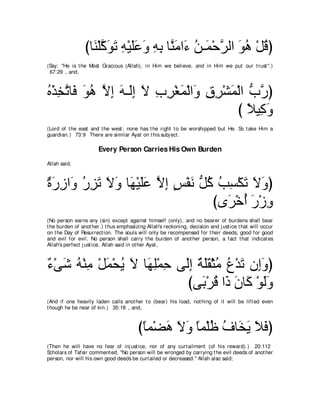 ﴿قُلْ هُوَ الرَّحْمَـنُ ءَامَنَّا بِهِ وَعَلَيْهِ تَوَكَّلْنَا﴾
(Say: "He is the Most Gracious (Allah), in Him we believe, and in Him we put our trust".) 67:29 , and,
﴿رَّبُّ الْمَشْرِقِ وَالْمَغْرِبِ لاَ إِلَـهَ إِلاَّ هُوَ فَاتَّخِذْهُ وَكِيلاً ﴾
(Lord of the east and the west; none has the right to be worshipped but He. So take Him a guardian.) 73:9 There are similar Ayat on this subject.
Every Person Carries His Own Burden
Allah said,
﴿وَلاَ تَكْسِبُ كُلُّ نَفْسٍ إِلاَّ عَلَيْهَا وَلاَ تَزِرُ وَازِرَةٌ وِزْرَ أُخْرَى﴾
(No person earns any (sin) except against himself (only), and no bearer of burdens shall bear the burden of another.) thus emphasizing Allah's reckoning, decision and justice that will occur on the Day of Resurrection. The souls will only be recompensed for their deeds, good for good and evil for evil. No person shall carry the burden of another person, a fact that indicates Allah's perfect justice. Allah said in other Ayat,
﴿وَإِن تَدْعُ مُثْقَلَةٌ إِلَى حِمْلِهَا لاَ يُحْمَلْ مِنْهُ شَىْءٌ وَلَوْ كَانَ ذَا قُرْبَى﴾
(And if one heavily laden calls another to (bear) his load, nothing of it will be lifted even though he be near of kin.) 35:18 , and,
﴿فَلاَ يَخَافُ ظُلْماً وَلاَ هَضْماً﴾
(Then he will have no fear of injustice, nor of any curtailment (of his reward).) 20:112 Scholars of Tafsir commented, "No person will be wronged by carrying the evil deeds of another person, nor will his own good deeds be curtailed or decreased." Allah also said;